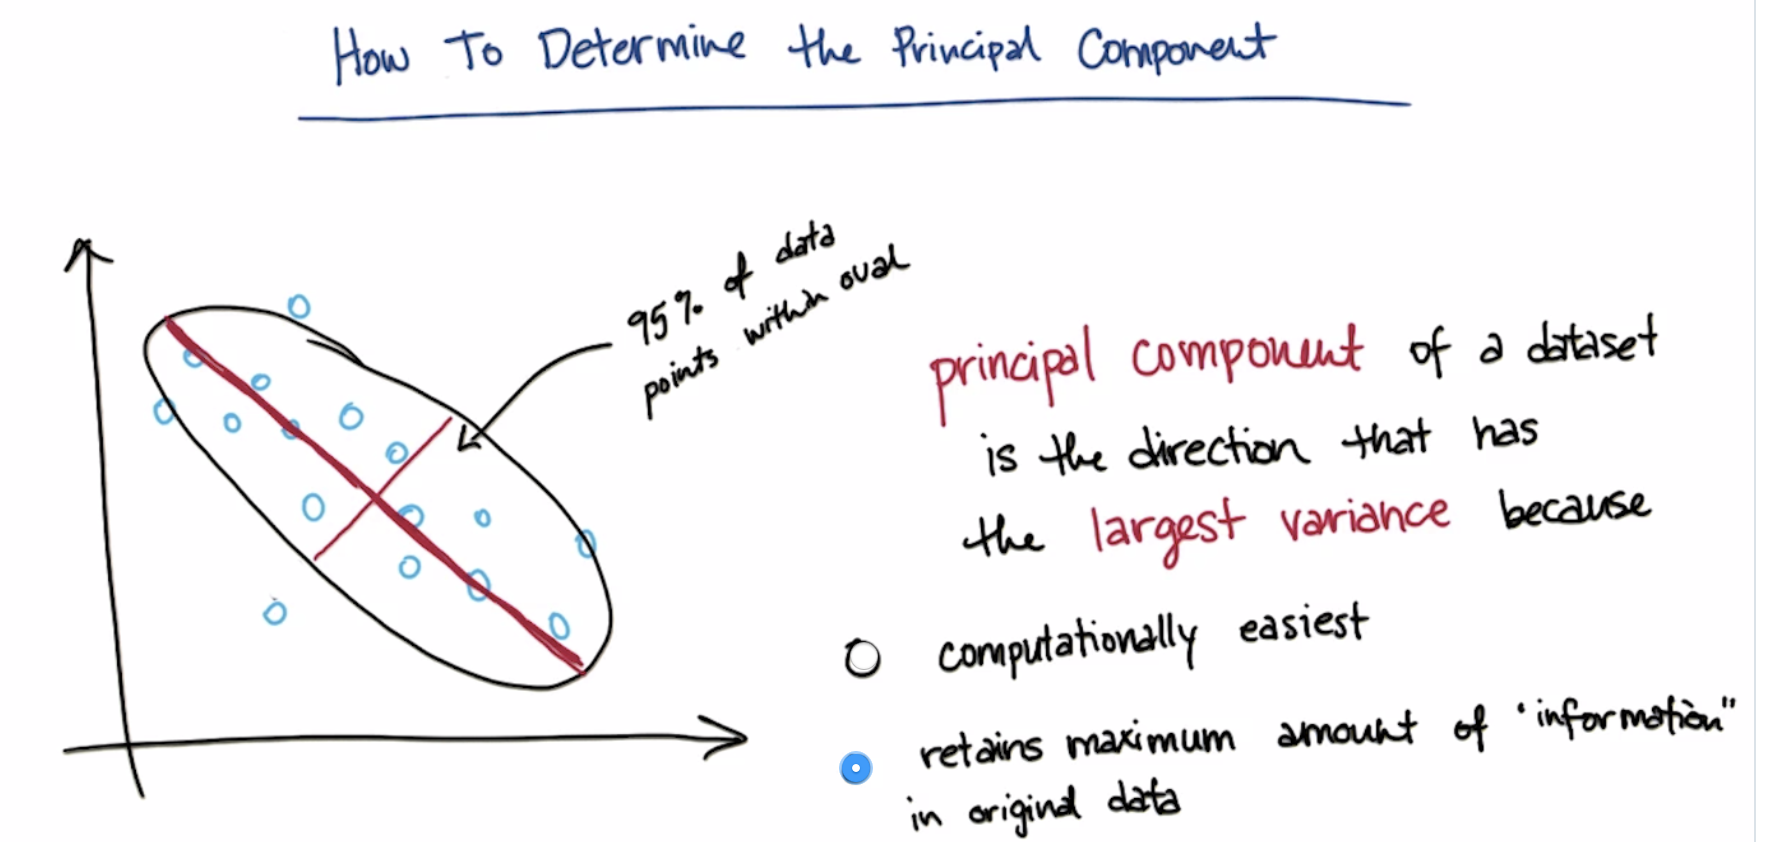 How To Determine the Principal Component
95% of data
points within oval
principal component of a dataset
is the direction that has
the largest variance because
computationally easiest
retains maximum amount of "information"
in original data